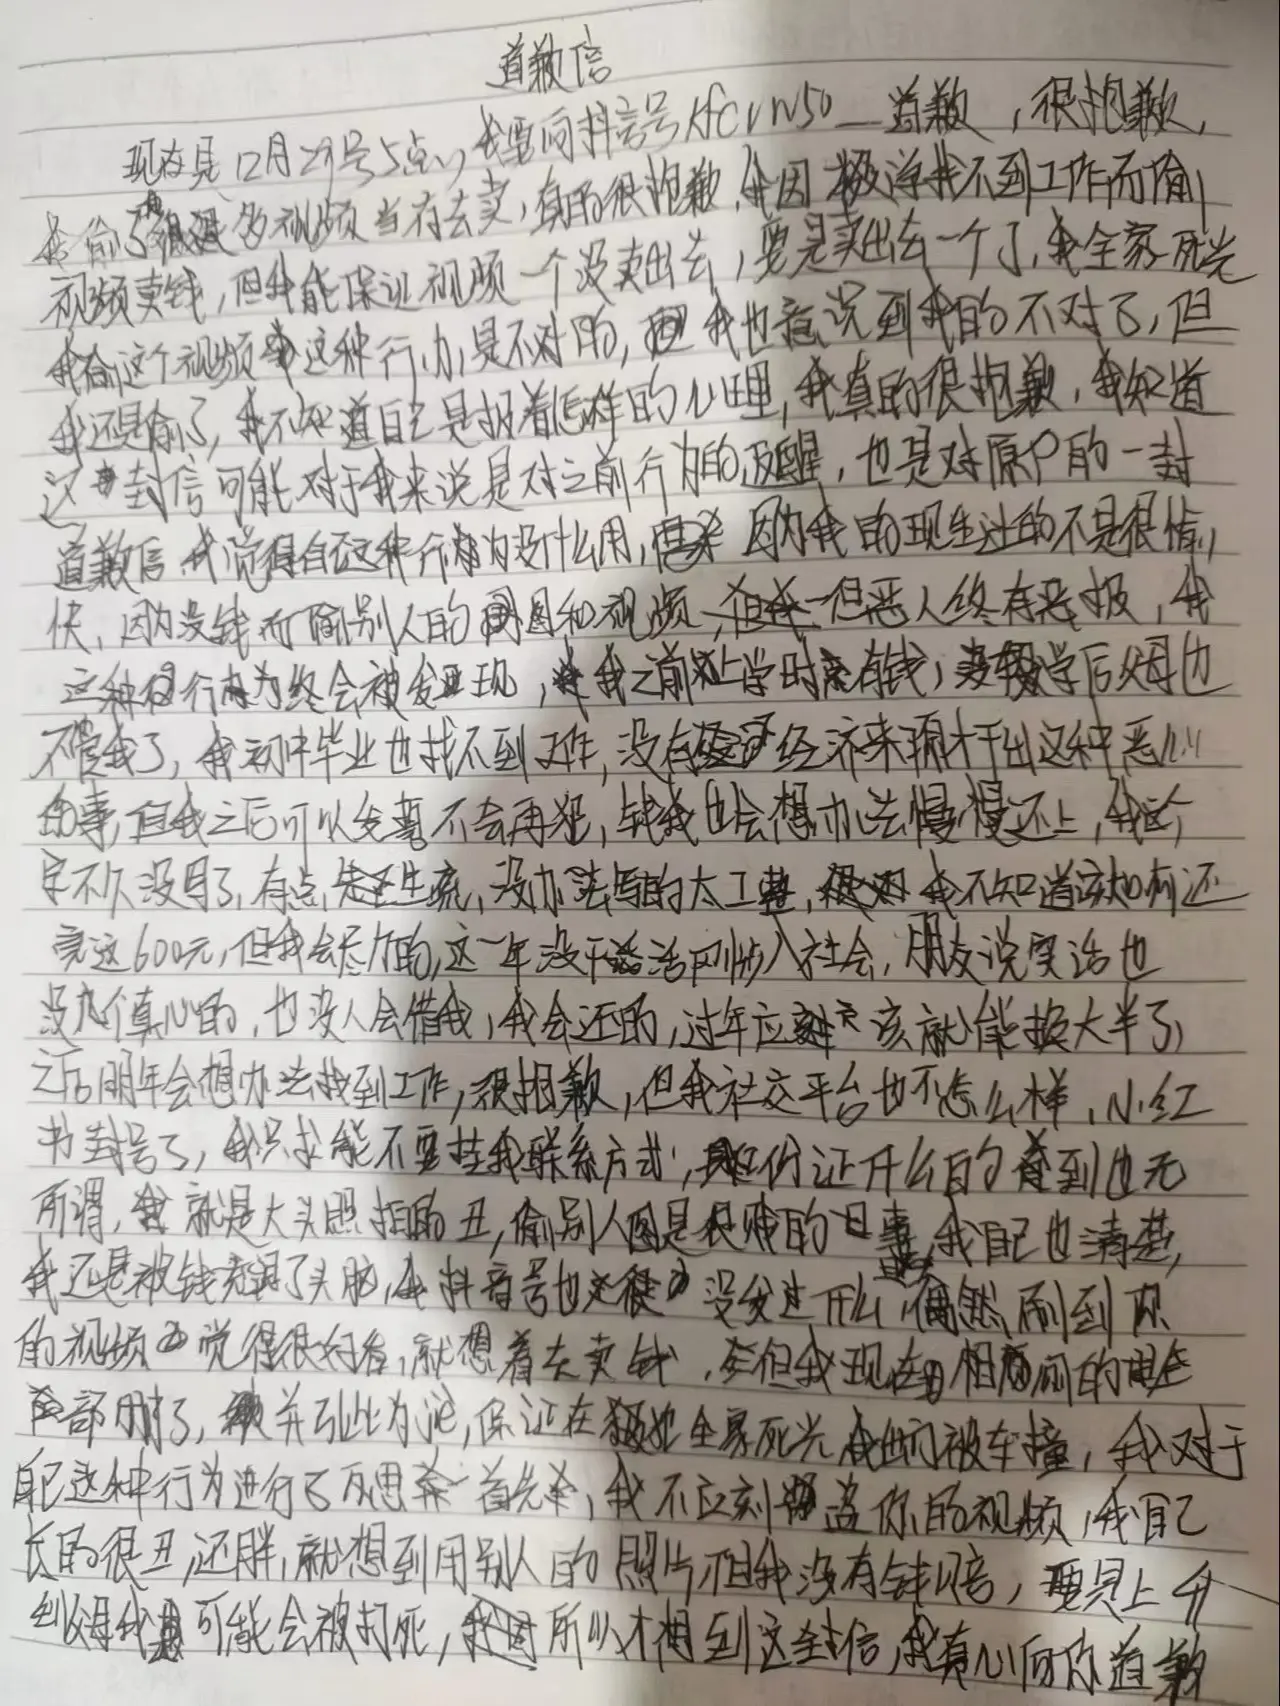 道歉信
现在是12月29号5点,我要向抖音号kfcvw50__道歉,很抱歉,
我偷了很多视频当存去卖,真的很抱歉,我因找不到工作而偷
视频卖钱,但我能保证视频一个没卖出去,要是卖出去一个了,我全家死光
我偷这个视频这种行为是不对的,我也意识到我的不对了,但
我还是偷了,我不知道自己是报着怎样的心理,我真的很抱歉,我知道
这封信可能对于我来说是对之前行为的反醒,也是对原户的一封
道歉信,我觉得自己这种行为没什么用,因为我的现生过的不是很愉
快,因为没钱而偷别人的图和视频,但恶人终有恶报,我
这种行为终会被发现,我之前上学时有钱,学后父母也
不管我了,我初中毕业也找不到工作,没有经济来源才干出这种恶心
的事,但我之后可以发誓不会再犯,钱我也会想办法慢慢还上,我这
字不久没写了,有点生疏,没办法写的太工整,我不知道该如何还
完这600元,但我会尽力的,这一年没干活刚步入社会,朋友说实话也
没几个真心的,也没人会借我,我会还的,过年应该就能换大半了,
之后明年会想办法找到工作,很抱歉,但我社交平台也不怎么样,小红
书封号了,我只求能不要挂我联系方式,身份证什么的看到也无
所谓,我就是大头照拍的丑,偷别人图是很贱的事,我自己也清楚,
我还是被钱冲昏了头脑,我抖音号也没发过什么,偶然刷到你
的视频觉得很好看,就想着去卖钱,但我现在相册的
全部删了,并引此为戒,保证在犯全家死光出门被车撞,我对于
自己这种行为进行了反思,首先,我不应刻盗你的视频,我自己
长的很丑,还胖,就想到用别人的照片,但我没有钱赔,要是上升
到父母我可能会被打死,所以才想到这封信,我真心向你道歉